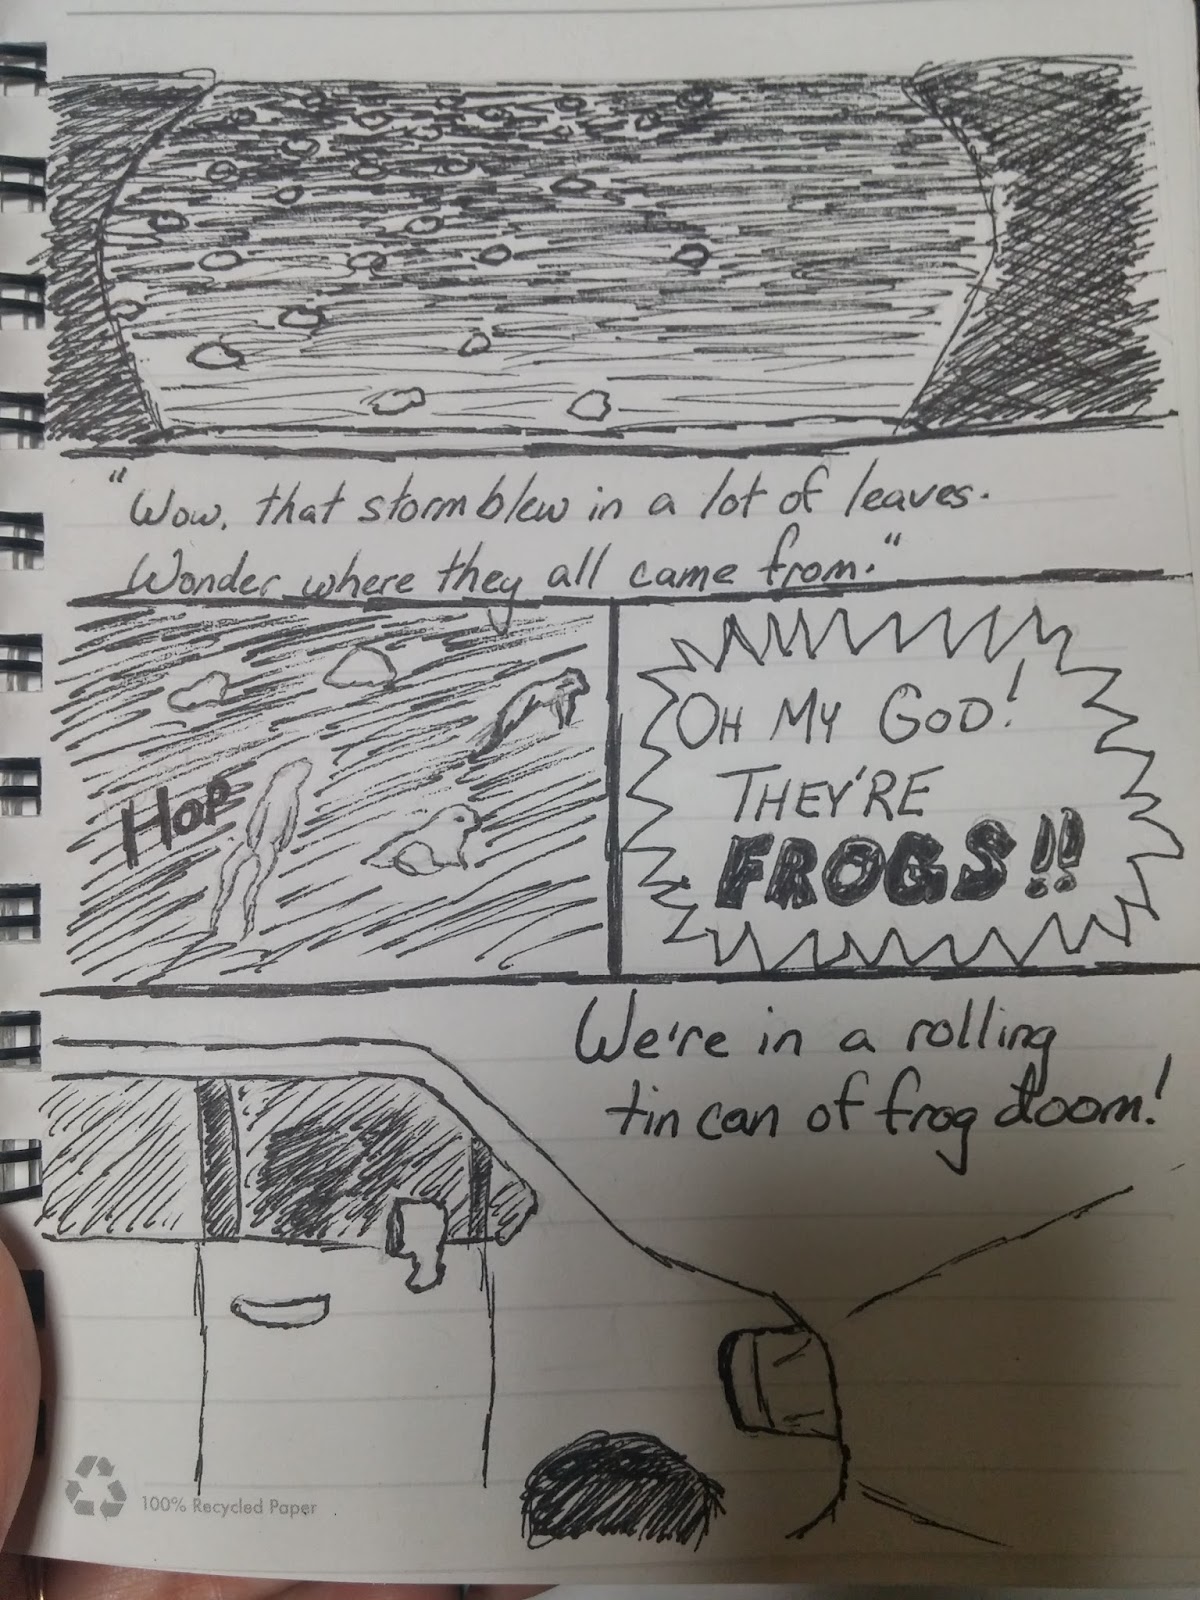 "Wow, that storm blew in a lot of leaves.
Wonder where they all came from."
HOP
OH MY GOD!
THEY'RE
FROGS!!
We're in a rolling
tin can of frog doom!
100% Recycled Paper